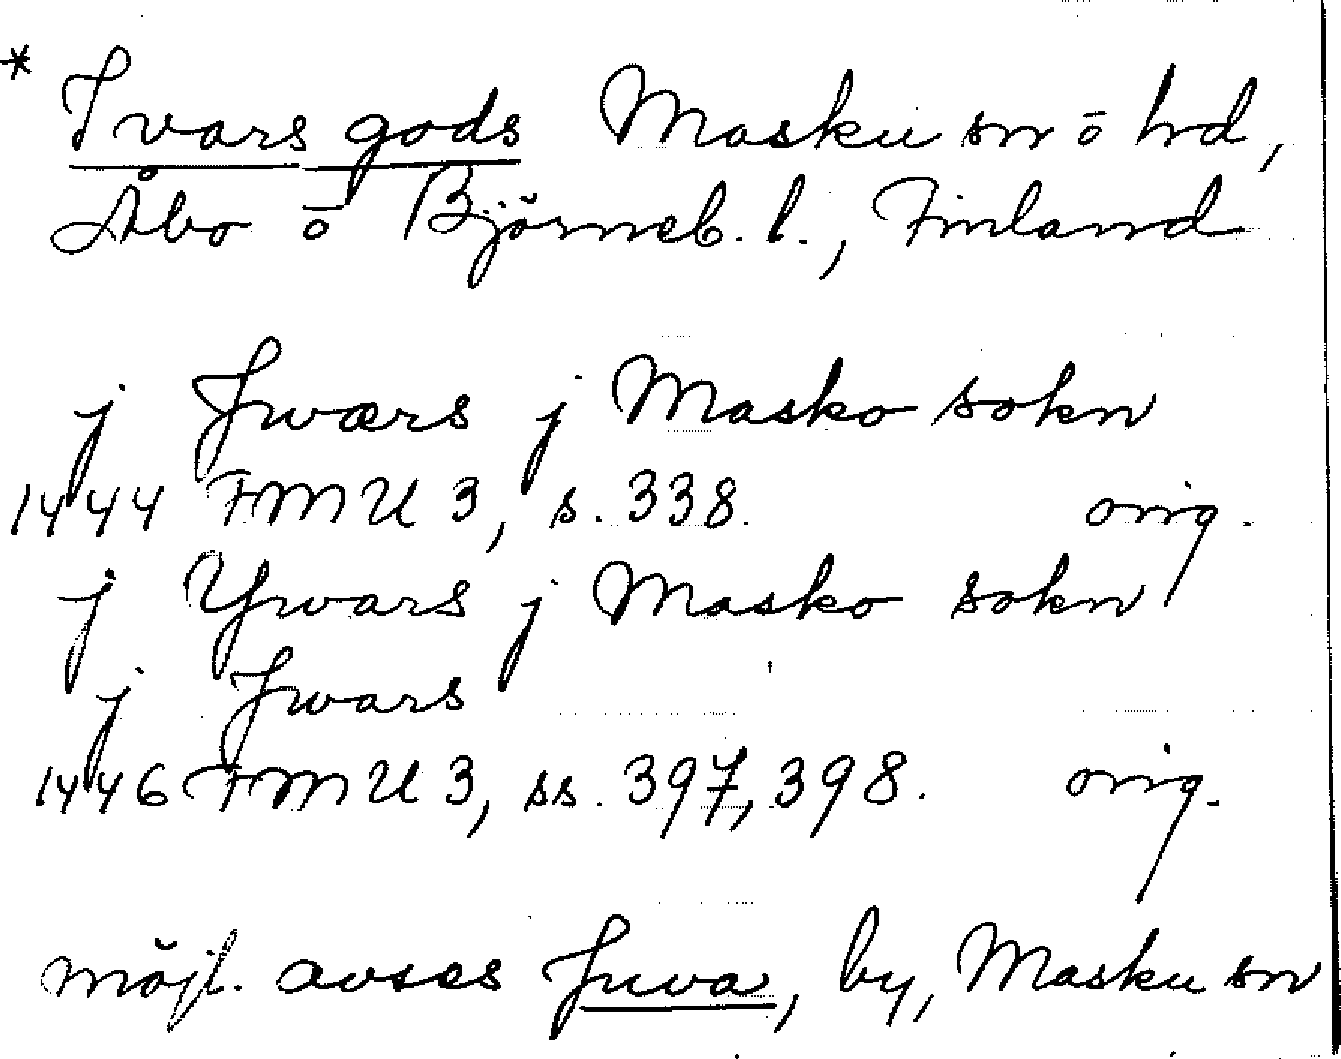 * Ivars gods Masku sn o hd,
Åbo o Björneb. l., Finland
j Jwærs j Masko sokn
1444 FMU 3, s. 338. orig.
j Ywars j Masko sokn
j Jwars
1446 FMU 3, ss. 397, 398. orig.
möjl. avses Juva, by, Masku sn